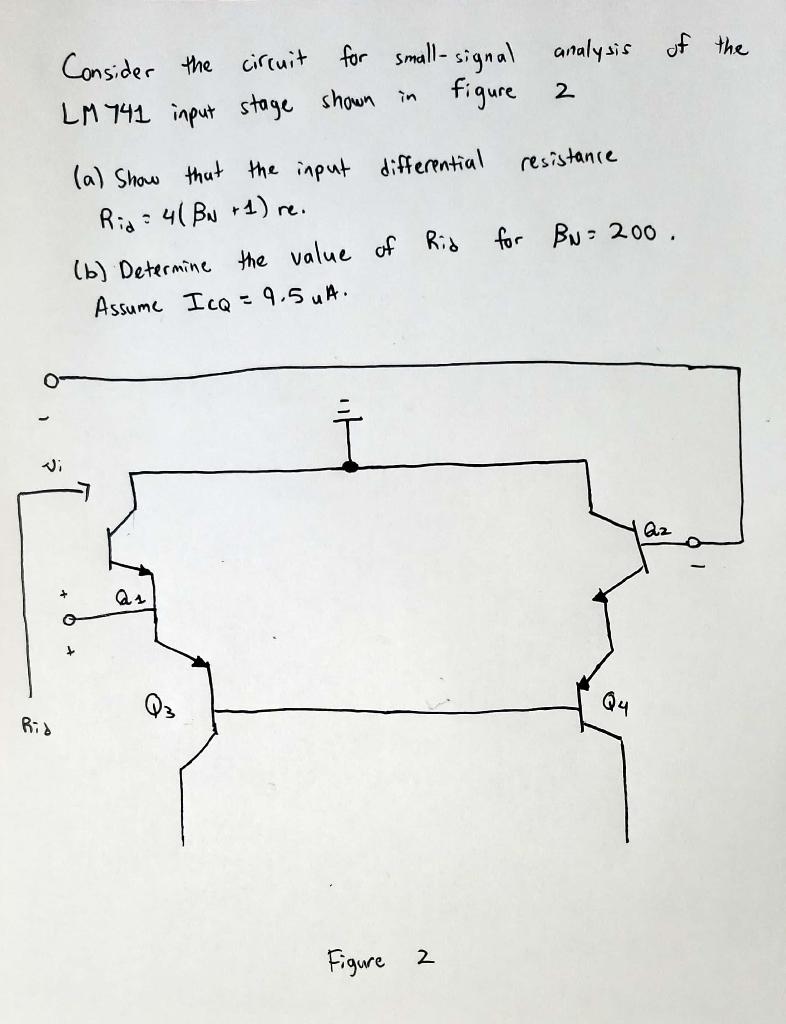 Consider the circuit for small-signal analysis of the
LM 741 input stage shown in figure 2
(a) Show that the input differential resistance
Rid = 4(BN +1) re.
(b) Determine the value of Rid for BN = 200.
Assume ICQ = 9.5 uA.
-
Vi
Q2
-
+
Q1
+
Q3
Q4
Rid
Figure 2